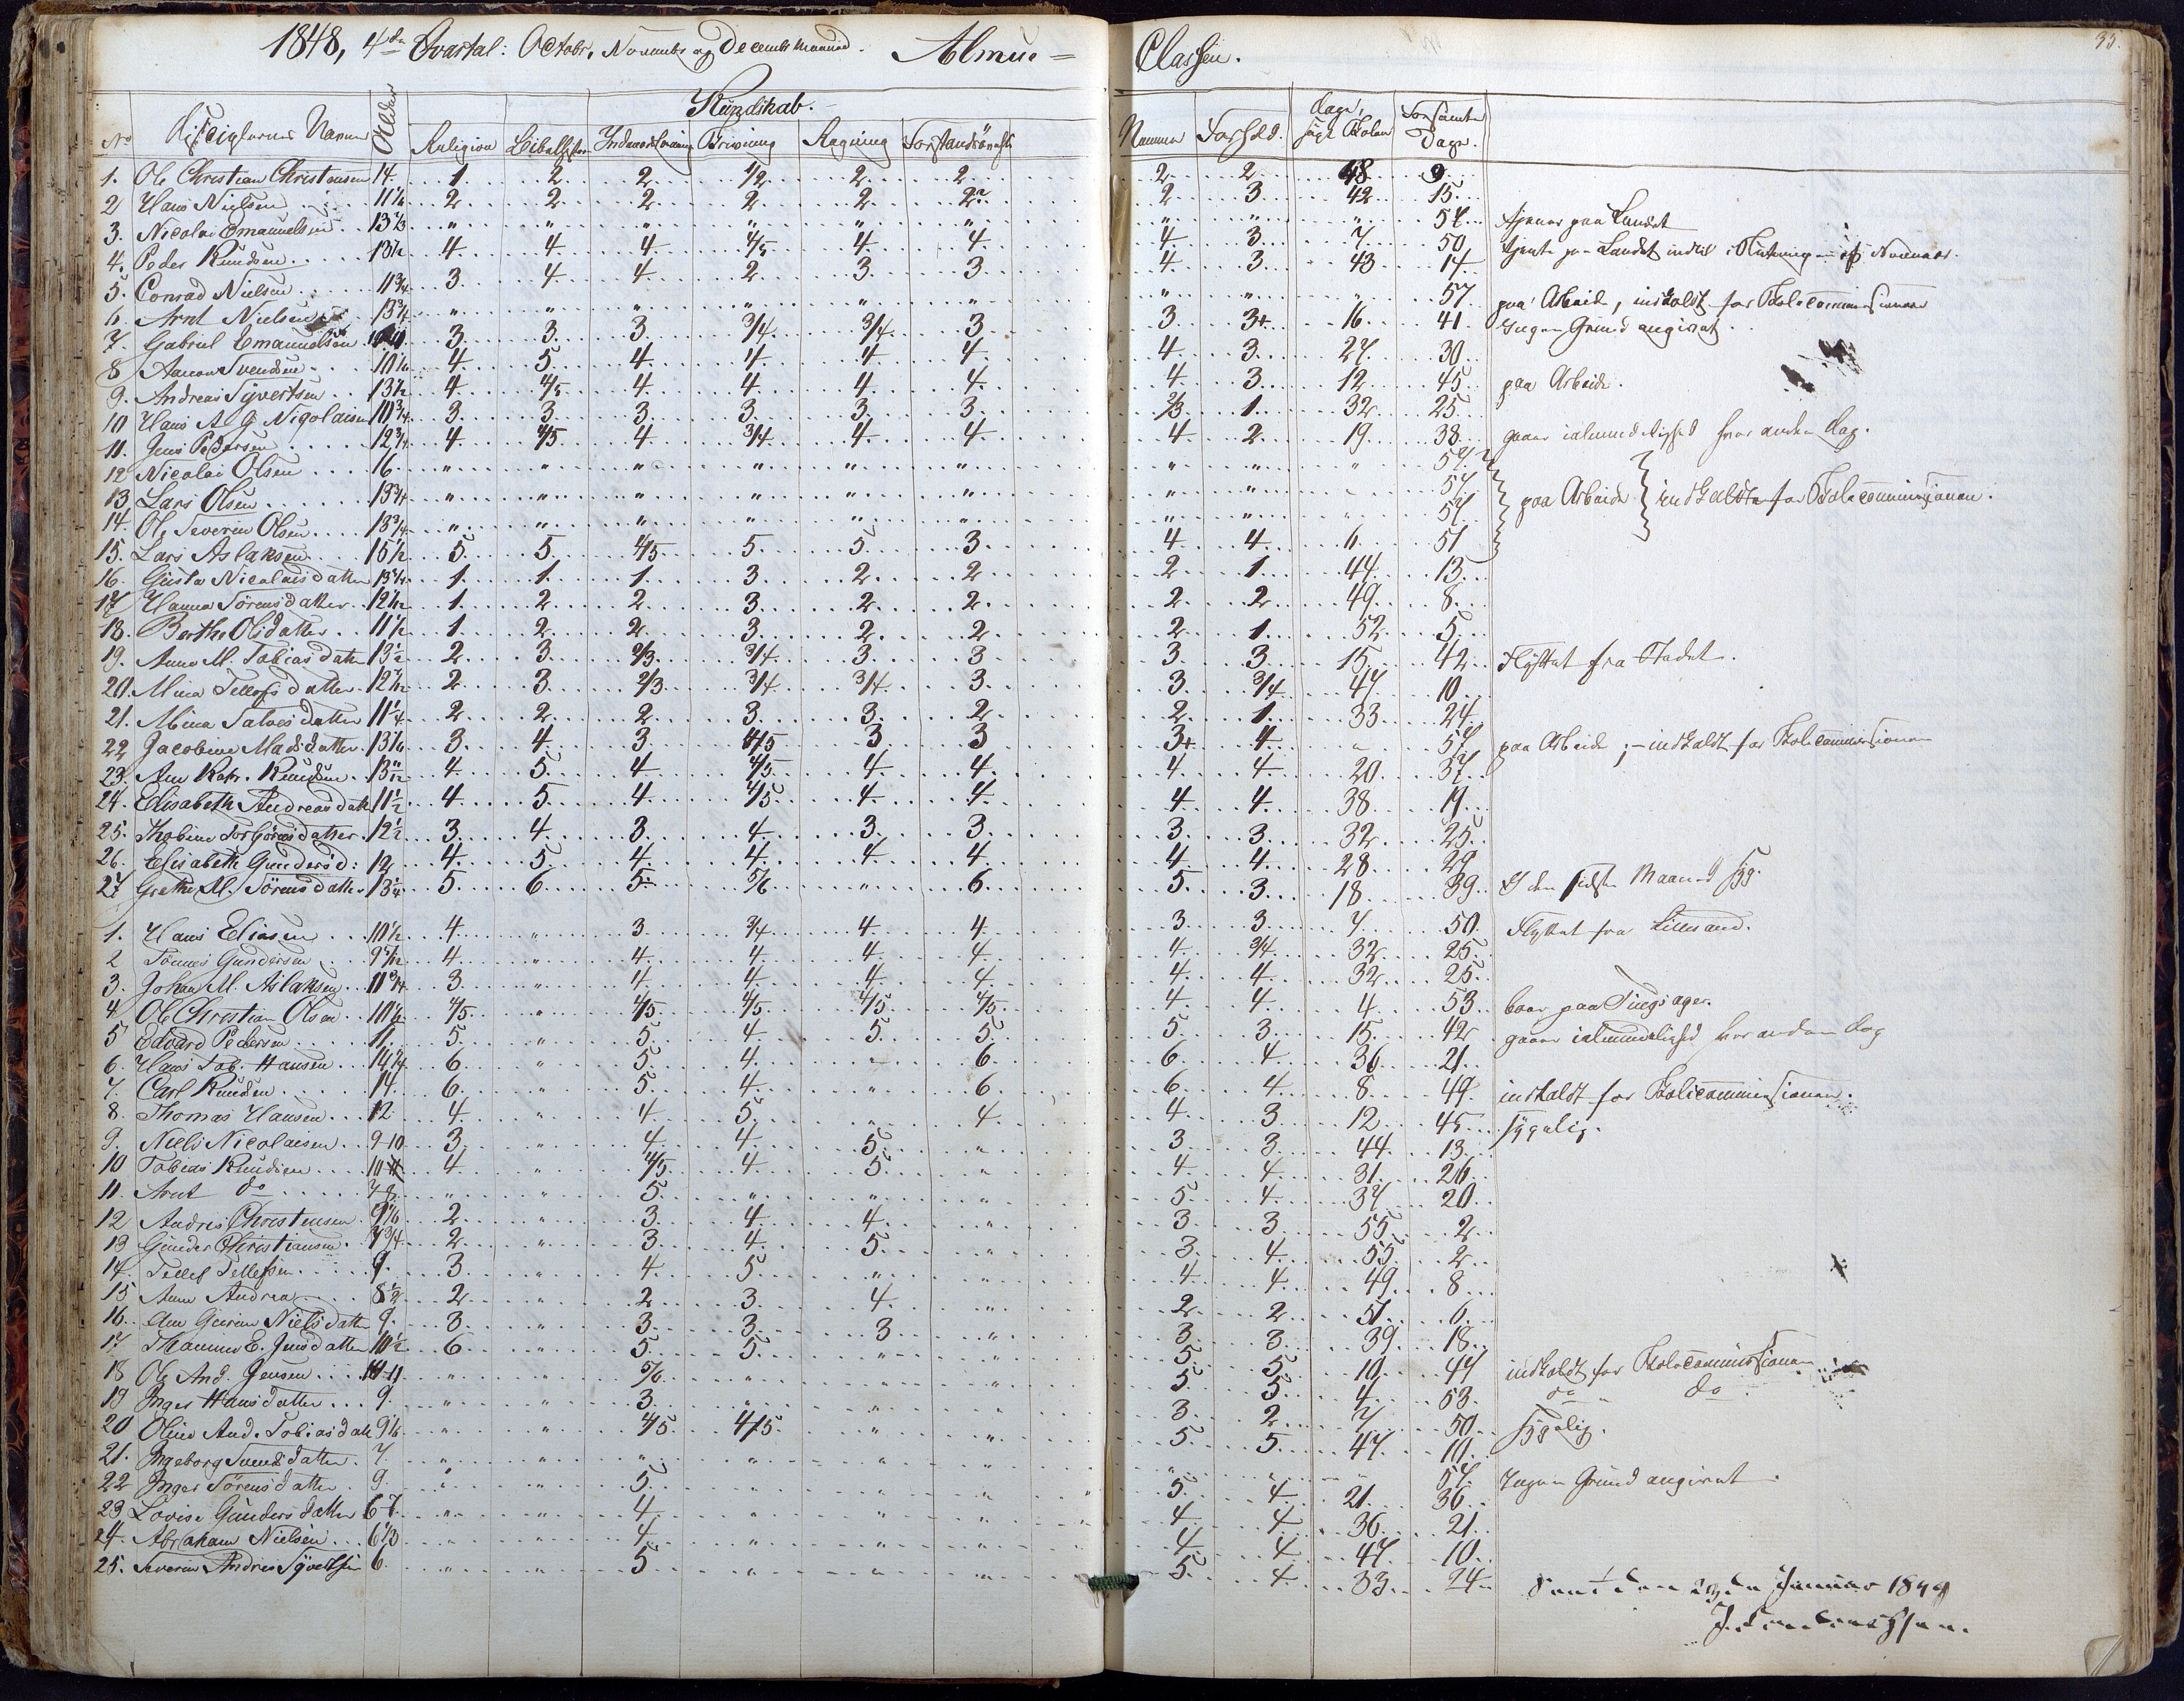 1848, 4de Qvartal: Octobr, Novembr og Decembr Maaned. Almue = Classen.
33.
Kundskab.
No Disciplernes Navne Alder Religion Bibelhistorie Indenadslæsning Skrivning Regning Forstandsøvelse Nemme Forhold. Dage, søgt Skolen Forsømte Dage.
1. Ole Christian Christensen 14. 1 2 2 1/2 2 2 2 2 48 9
2 Hans Nielsen 11 1/6 2 2 2 2 2 2? 2 3 42 15
3. Nicolai Emanuelsen 13 2/3 " " " " " " " " " 57 tjener paa Landet
4. Peder Knudsen 13 1/2 4 4 4 4/5 4 4 4 3 7 50 tjente paa Landet indtil Slutningen af November.
5. Conrad Nielsen 11 3/4 3 4 4 2 3 3 4 3 43 14
6. Arnt Nielsen 13 3/4 " " " " " " " " " 57 paa Arbeide, indkaldt for Skolecommissionen
7 Gabriel Emanuelsen 3 3 3 3/4 3/4 3 3 3+ 16 41 Ingen Grund angivet.
8 Aanon Svendsen 10 1/6 4 5 4 4 4 4 4 3 27 30
9. Andreas Syvertsen 13 1/2 4 4/5 4 4 4 4 4 3 12 45 paa Arbeide.
10 Hans A G Nicolaisen 10 3/4 3 3 3 3 3 3 2/3 1 32 25
11. Jens Pedersen 12 3/4 4 4/5 4 3/4 4 4 4 2 19 38 gaaer ialmindelighed hver anden Dag.
12 Nicolai Olsen 16 " " " " " " " " " 57
13 Lars Olsen 13 3/4 " " " " " " " " " 57 paa Arbeide indkaldte for Skolecommissionen.
14. Ole Severin Olsen 13 3/4 " " " " " " " " " 57
15. Lars Aslaksen 15 1/2 5 5 4/5 5 5 3 4 4 6 51
16. Gusta Nicolaisdatter 13 3/4 1 1 1 3 2 2 2 1 44 13
17 Hanna Sørensdatter 12 1/12 1 2 2 3 2 2 2 2 49 8
18. Berthe Olsdatter 11 1/2 1 2 2 3 2 2 2 1 52 5
19. Anne M. Tobiasdatter 13 1/2 2 3 2/3 3/4 3 3 3 3 15 42 Flyttet fra Stedet.
20. Mina Tellefsdatter 12 7/12 2 3 2/3 3/4 3/4 3 3 3/4 47 10
21. Mina Salvesdatter 11 1/4 2 2 2 3 3 2 2 1 33 24
22 Jacobine Madsdatter 13 1/6 3 4 3 4/5 3 3 3+ 4 " 57 paa Arbeide; - indkaldt for Skolecommissionen
23. Ane Kath. Knudsen 13 11/12 4 5 4 4/5 4 4 4 4 20 37
24. Elisabeth Andreasdatt 11 1/2 4 5 4 4/5 4 4 4 4 38 19
25. Thobine Torbjørnsdatter 12 1/2 3 4 3 4 3 3 3 3 32 25
26. Elisabeth Gundersd: 12 4 5 4 4 4 4 4 4 28 29
27 Grethe M. Sørensdatter 13 1/4 5 6 5 5/6 " 6 5 3 18 39 I den sidste Maaned syg.
1. Hans Eliasen 10 1/2 4 " 3 3/4 4 4 3 3 7 50 Flyttet fra Lillesand.
2 Tønnes Gundersen 9 5/12 4 " 4 4 4 4 4 3/4 32 25
3. Johan M. Aslaksen 11 3/4 3 " 4 4 4 4 4 4 32 25
4 Ole Christian Olsen 10 1/2 4/5 " 4/5 4/5 4/5 4/5 4 4 4 53 boer paa Tingsager.
5 Edvard Pedersen 11 5 " 5 4 5 5 5 3 15 42 gaaer ialmindelighed hver anden Dag
6. Hans Tob. Hansen 14 3/4 6 " 5 4 " 6 6 4 36 21
7. Carl Knudsen 14 6 " 5 4 " 6 6 4 8 49 indkaldt for Skolecommissionen.
8. Thomas Hansen 12 4 " 4 5 " 4 4 3 12 45 sygelig.
9. Niels Nicolaisen 9-10 3 " 4 4 5 " 3 3 44 13
10 Tobias Knudsen 10-11 4 " 4/5 4 5 " 4 4 31 26
11. Arnt do 7-8 " " 5 " " " 5 4 37 20
12 Andreas Christensen 9 1/6 2 " 3 4 4 " 3 3 55 2
13 Gunder Christiansen 7 3/4 2 " 3 4 5 " 3 4 55 2
14. Tellef Tellefsen 9 3 " 4 5 " " 4 4 49 8
15 Anne Andrea 8 1/2 2 " 2 3 4 " 2 2 51 6
16. Ane Gurine Nielsdatter 9 3 " 3 3 3 " 3 3 39 18
17 Thamine E. Jensdatter 10 1/2 6 " 5 5 " " 5 5 10 47 indkaldt for Skolecommissionen
18 Ole And. Jensen 10-11 " " 5/6 " " " 5 5 4 53 do do
19 Inger Hansdatter 9 " " 3 " " " 3 2 7 50 sygelig.
20 Oline And. Tobiasdatt 9 1/6 " " 4/5 4/5 " " 5 5 47 10
21. Ingeborg Svendsdatter 7 " " " " " " " " " 57 Ingen Grund angivet.
22 Inger Sørensdatter 9 " " 5 " " " 5 4 21 36
23 Lovise Gundersdatter 6-7 " " 4 " " " 4 4 36 21
24. Abraham Nielsen 6 1/3 " " 4 " " " 4 4 47 10
25. Severin Andreas Syvertsen 6 " " 5 " " " 5 4 33 24
Januar 1849